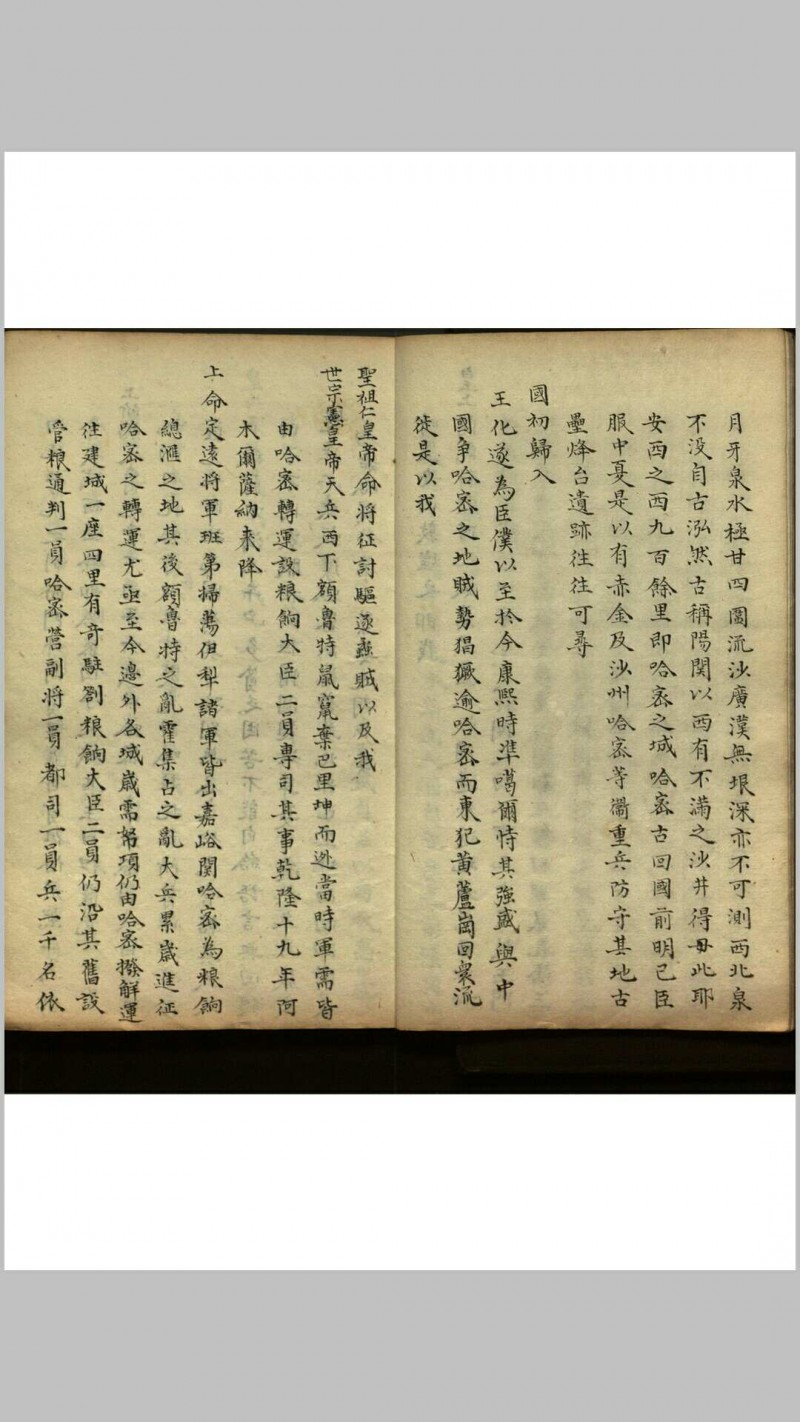 月牙泉水極甘四圍流沙廣漠無垠深亦不可測西北泉
不没自古泓然古稱陽関以西有不滿之沙井得毋此耶
安西之西九百餘里即哈宻之城哈宻古回國前明已臣
服中夏是以有赤金及沙州哈宻等衞重兵防守其地古
壘烽台遺跡徃徃可尋
國初歸入
王化遂為臣僕以至於今康熙時準噶爾恃其強盛與中
國争哈宻之地賊勢猖獗逾哈宻而東犯黄蘆崗回衆流
徙是以我
聖祖仁皇帝命將征討驅逐蠢賊以及我
世宗憲皇帝天兵西下額魯特鼠竄棄巴里坤而迯當時軍需皆
由哈宻轉運設粮餉大臣二員専司其事乾隆十九年阿
木爾薩納来降
上命定遠将軍班第掃蕩伹犁諸軍皆出嘉峪関哈宻為粮餉
總滙之地其後額魯特之亂霍集占之亂大兵累嵗進征
哈宻之轉運尤亟至今邉外各城嵗需帑項仍由哈宻撥解運
徃建城一座四里有竒駐劄粮餉大臣二員仍沿其舊設
管粮通判一員哈宻營副将一員都司一員兵一千名依